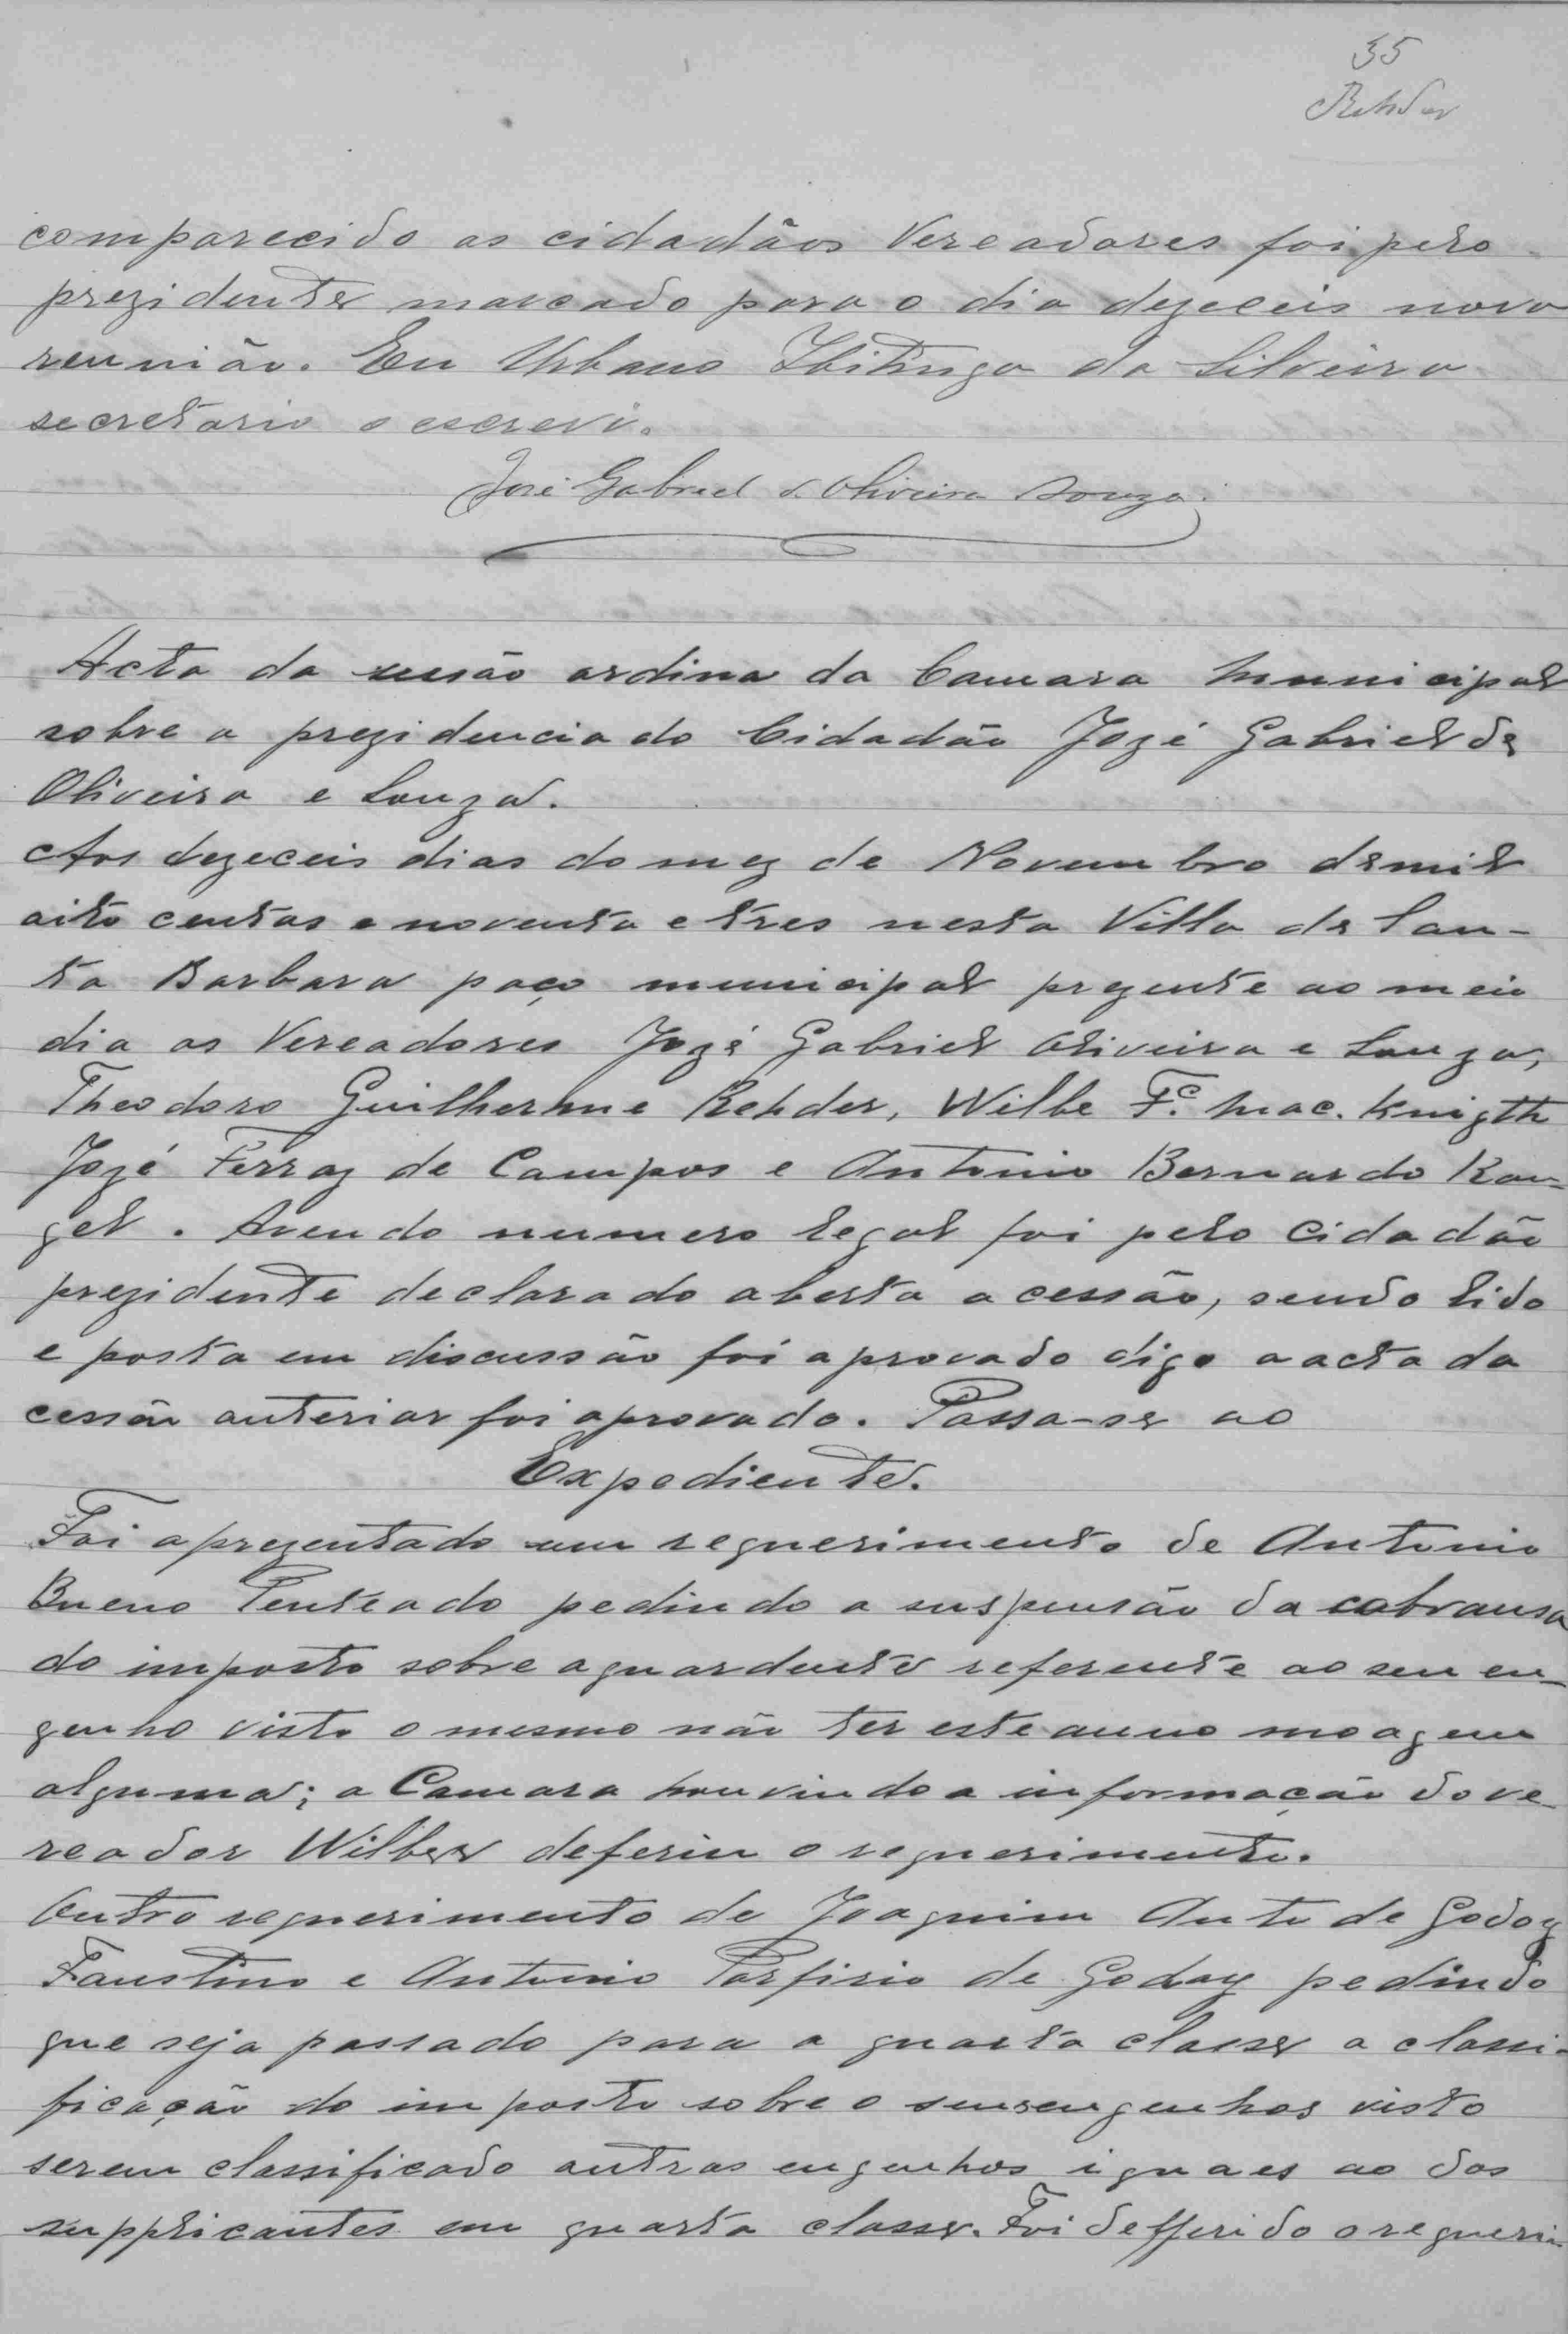 35
Rehder
comparecido os cidadãos Vereadores foi pelo
prezidente marcado para o dia dezeceis nova
reunião. Eu Urbano Ibitinga da Silveira
secretario o escrevi.
José Gabriel d. Oliveira Souza.
Acta da sesão ordina da Camara Municipal
sobre a prezidencia do Cidadão Jozé Gabriel de
Oliveira e Souza.
Aos dezeceis dias do mez de Novembro de mil
oito centos e noventa e tres nesta Villa de San-
ta Barbara paço municipal prezente ao meio
dia os Vereadores Jozé Gabriel Oliveira e Souza,
Theodoro Guilherme Rehder, Wilbe F.c Mac. Knigth
Jozé Ferraz de Campos e Antonio Bernardo Ran-
gel. Avendo numero legal foi pelo Cidadão
prezidente declarado aberta a cessão, sendo lido
e posta em discussão foi aprovado digo a acta da
cessão anterior foi aprovado. Passa-se ao
Expediente.
Foi aprezentado um requerimento de Antonio
Bueno Penteado pedindo a suspensão da cobransa
do imposto sobre aguardente referente ao seu en-
genho visto o mesmo não ter este anno moagem
alguma; a Camara houvindo a informação do ve-
reador Wilber deferiu o requerimento.
Outro requerimento de Joaquim Anto de Godoy
Faustino e Antonio Porfirio de Godoy pedindo
que seja passado para a quarta classe a classi-
ficação do imposto sobre o seus engenhos visto
serem classificado outros engenhos iguaes ao dos
supplicantes em quarta classe. Foi defferido o requeri-